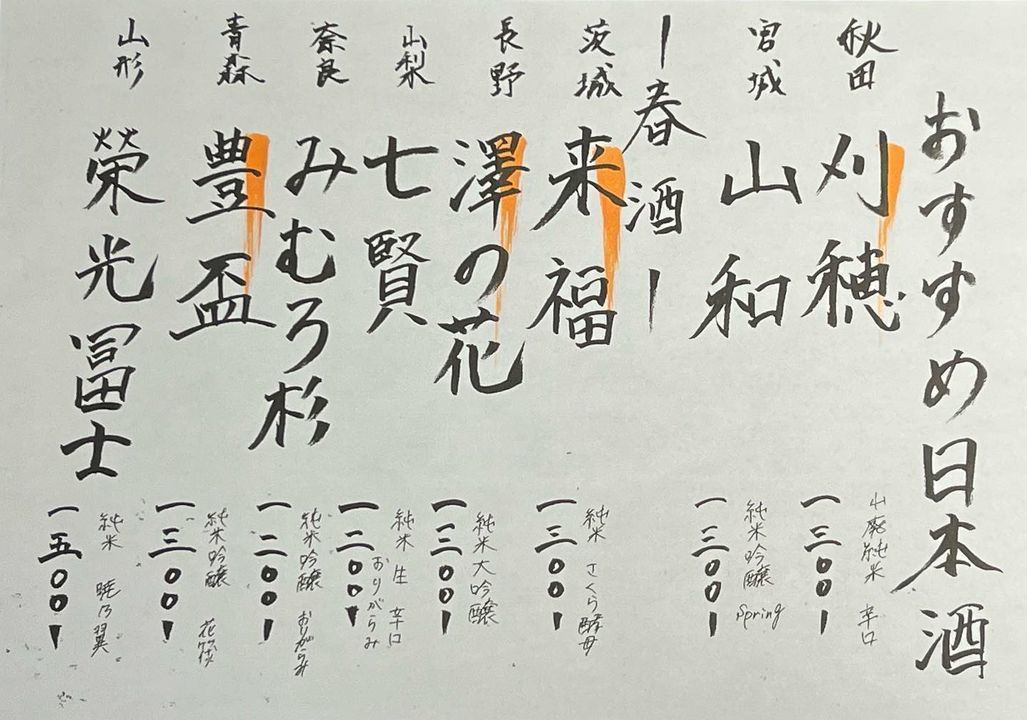 おすすめ日本酒
秋田
刈穂
山廃純米 辛口
一三〇〇ー
宮城
山和
純米吟醸 Spring
一三〇〇ー
ー春酒ー
茨城
来福
純米 さくら酵母
一三〇〇ー
長野
澤の花
純米大吟醸
一三〇〇ー
山梨
七賢
純米 生 辛口
おりがらみ
一二〇〇ー
奈良
みむろ杉
純米吟醸 おりがらみ
一二〇〇ー
青森
豊盃
純米吟醸 花筏
一三〇〇ー
山形
榮光冨士
純米 暁乃翼
一五〇〇ー